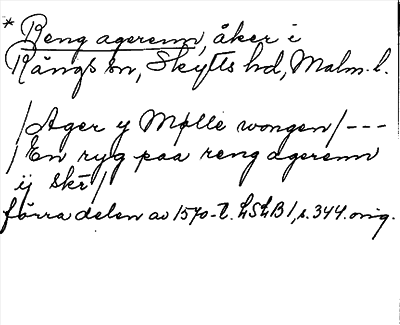 * Reng agerenn, åker i
Rängs sn, Skytts hd, Malm. l.
/Ager y Mølle wongen/ ---
/En ryg paa reng agerenn
ij skr/
förra delen av 1570-t. LSLB 1, s. 344. orig.